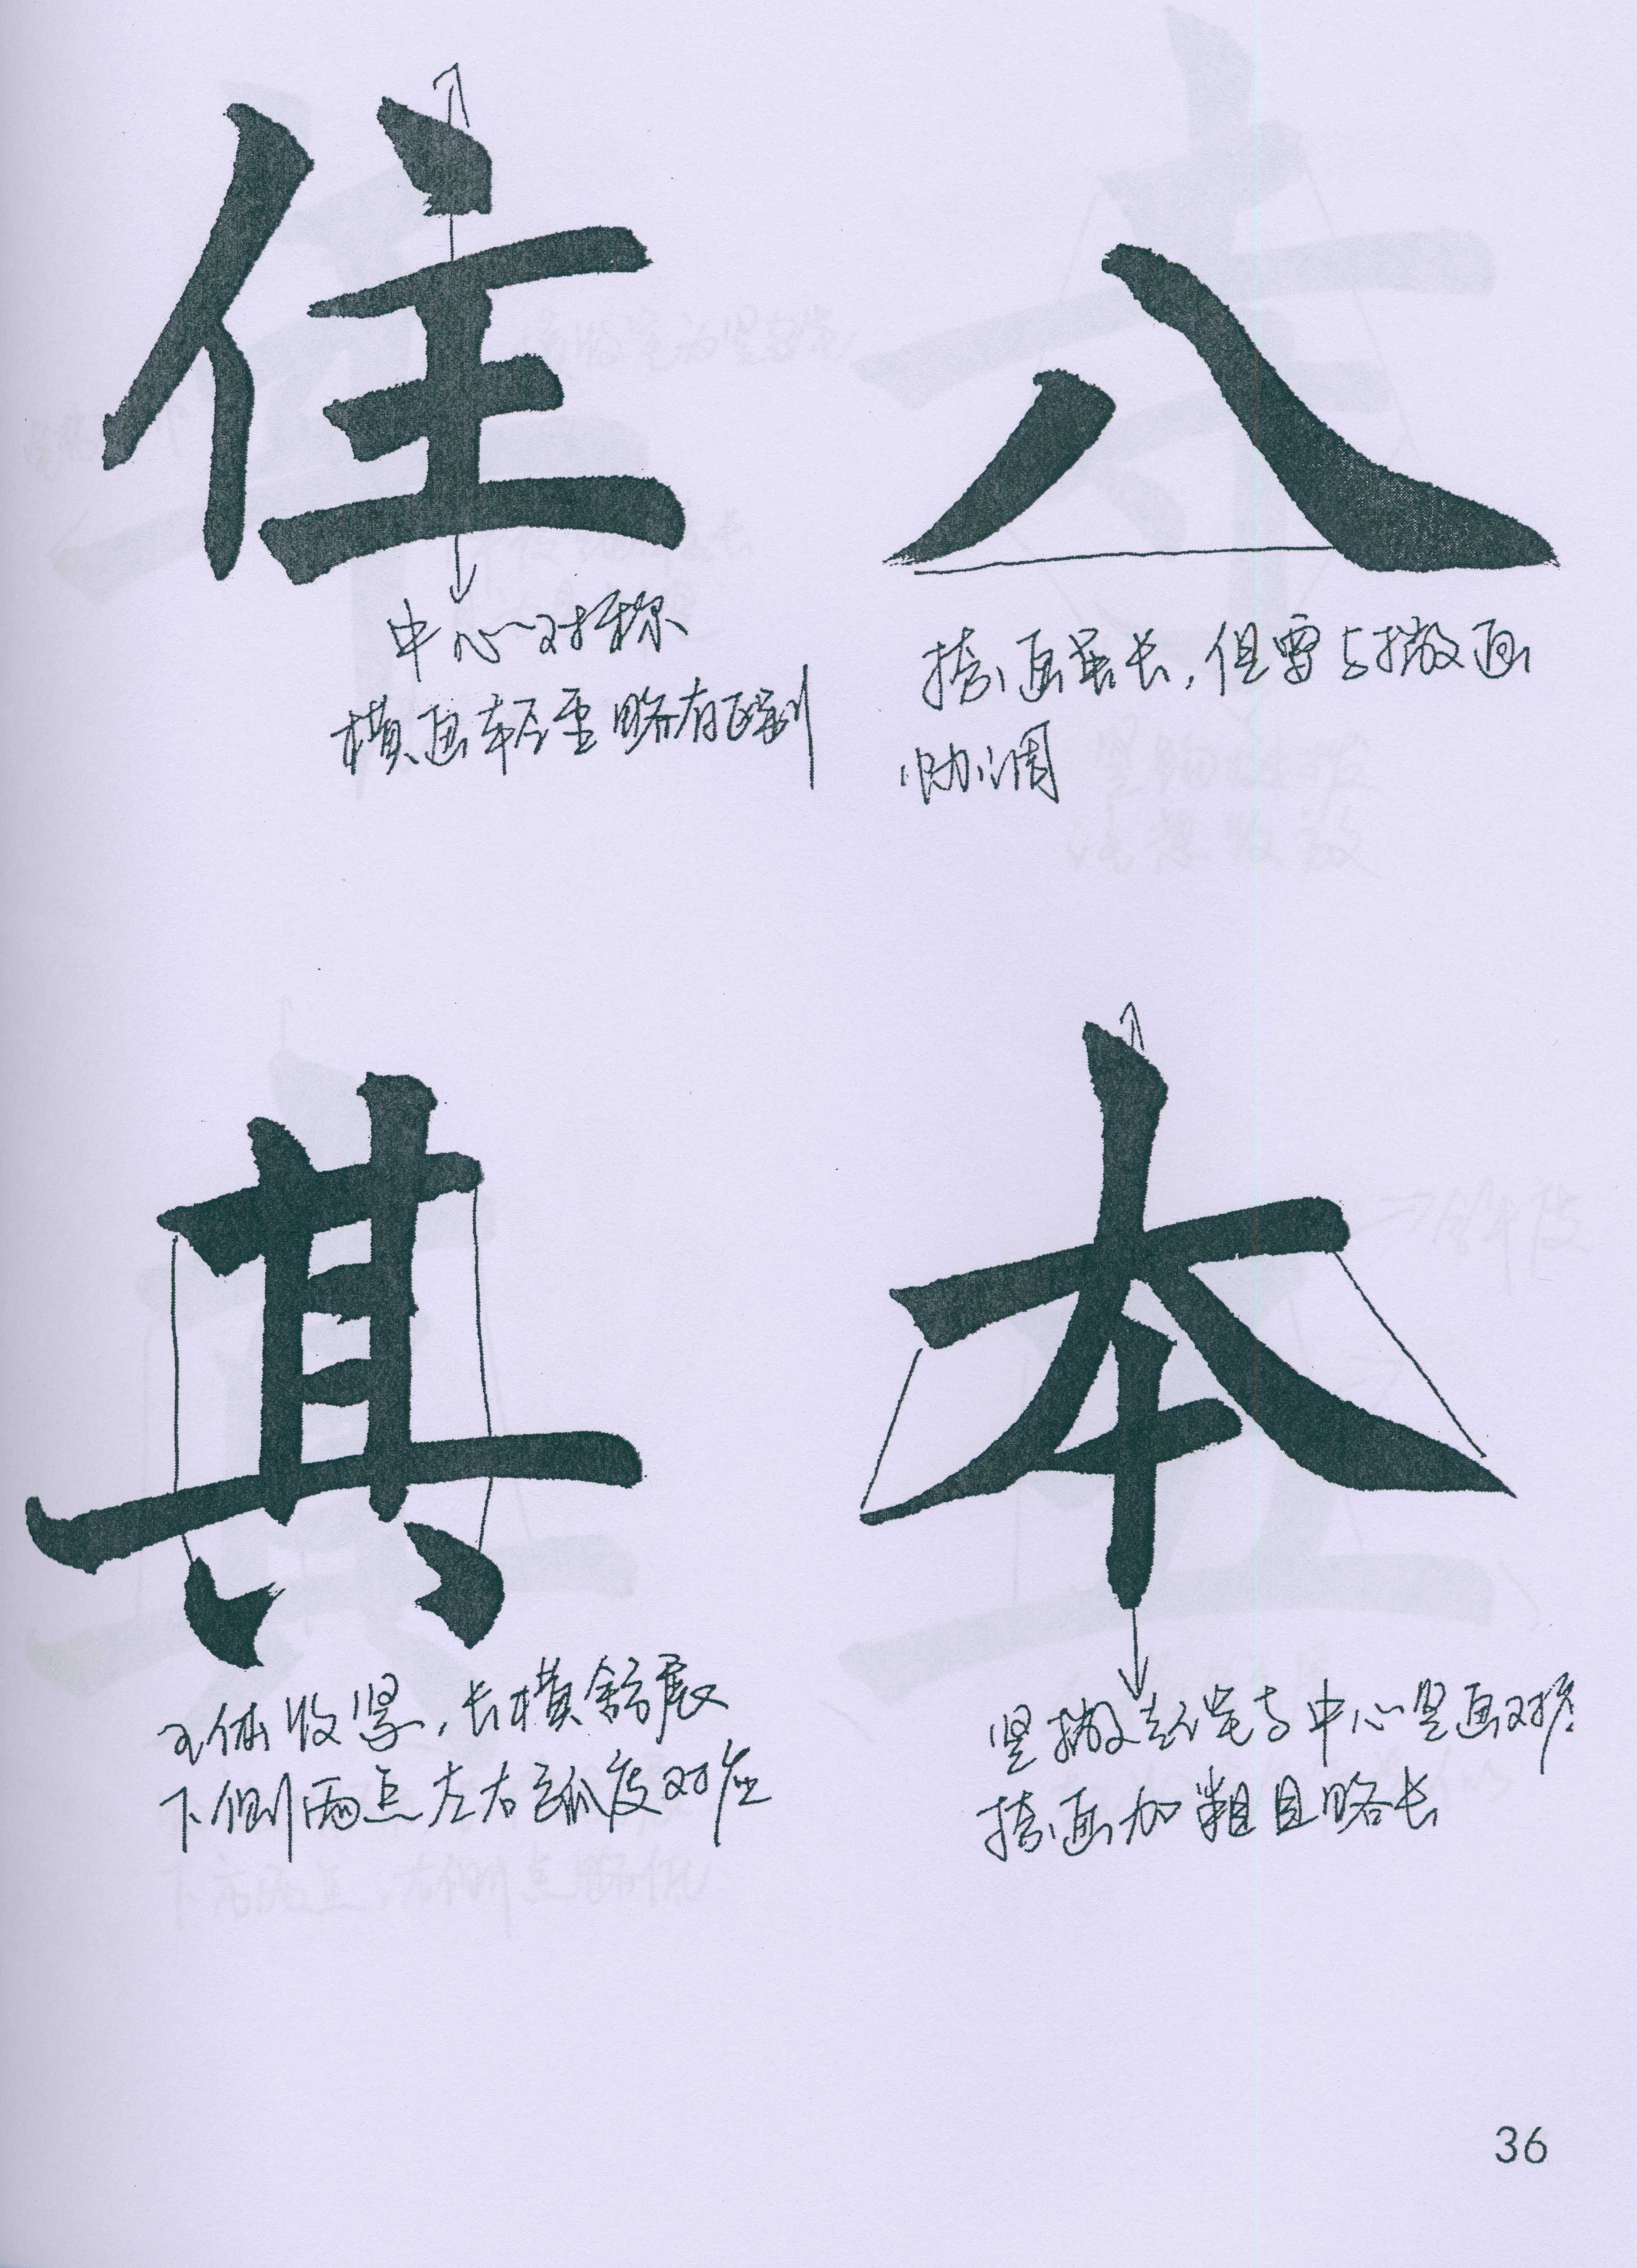 住
中心对称
横画轻重略有区别
八
捺画虽长,但要与撇画
协调
其
主体收紧,长横舒展
下侧两点左右弧度对应
本
竖撇起笔与中心竖画对齐
捺画加粗且略长
36